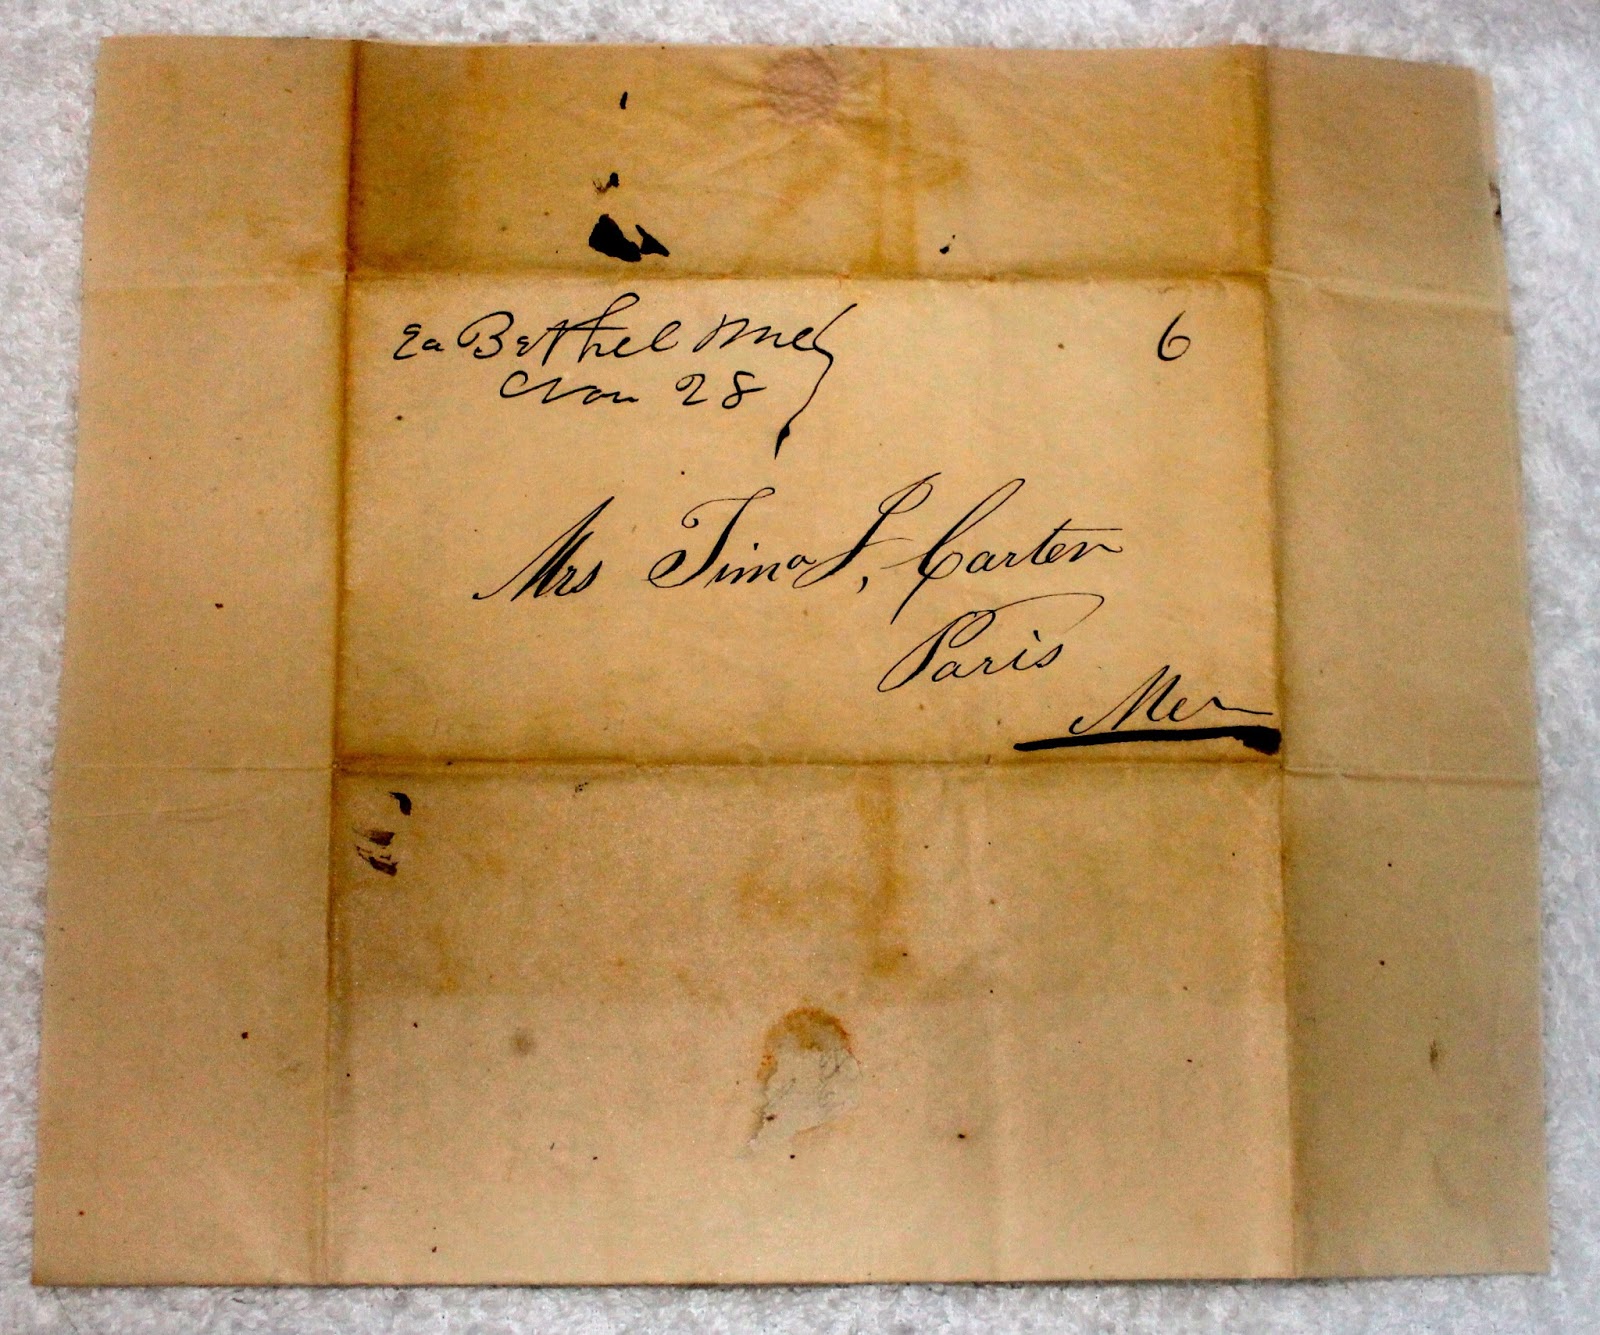 Ea Bethel Me
Nov 28
6
Mrs Timo J, Carter
Paris
Me